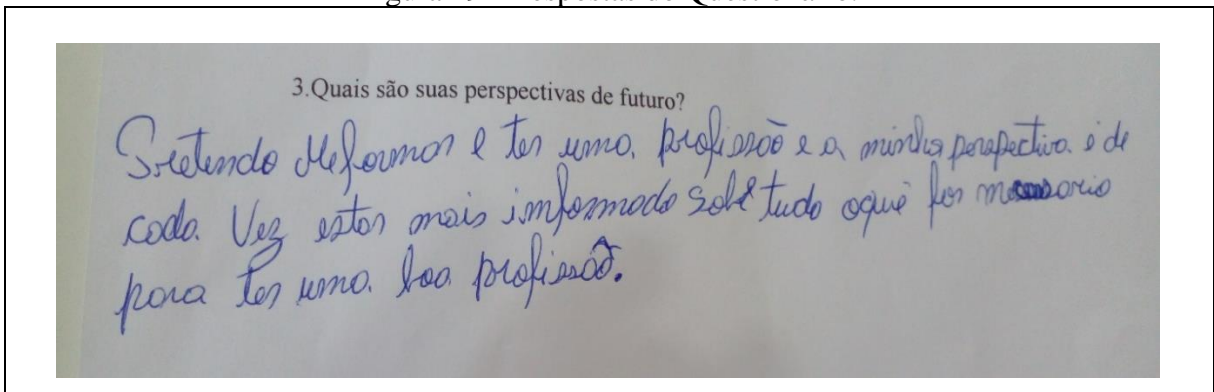 3.Quais são suas perspectivas de futuro?
Pretendo Meformar e ter uma profissão e a minha perspectiva é de
cada Vez estar mais imformado sobre tudo oque for
para ter uma boa profissão.